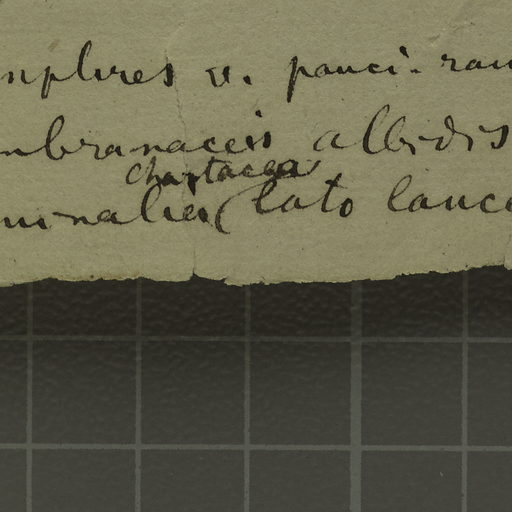 mplices v. pauci-ram
mbranaceis albidis
chartacea
minalia (lato lance